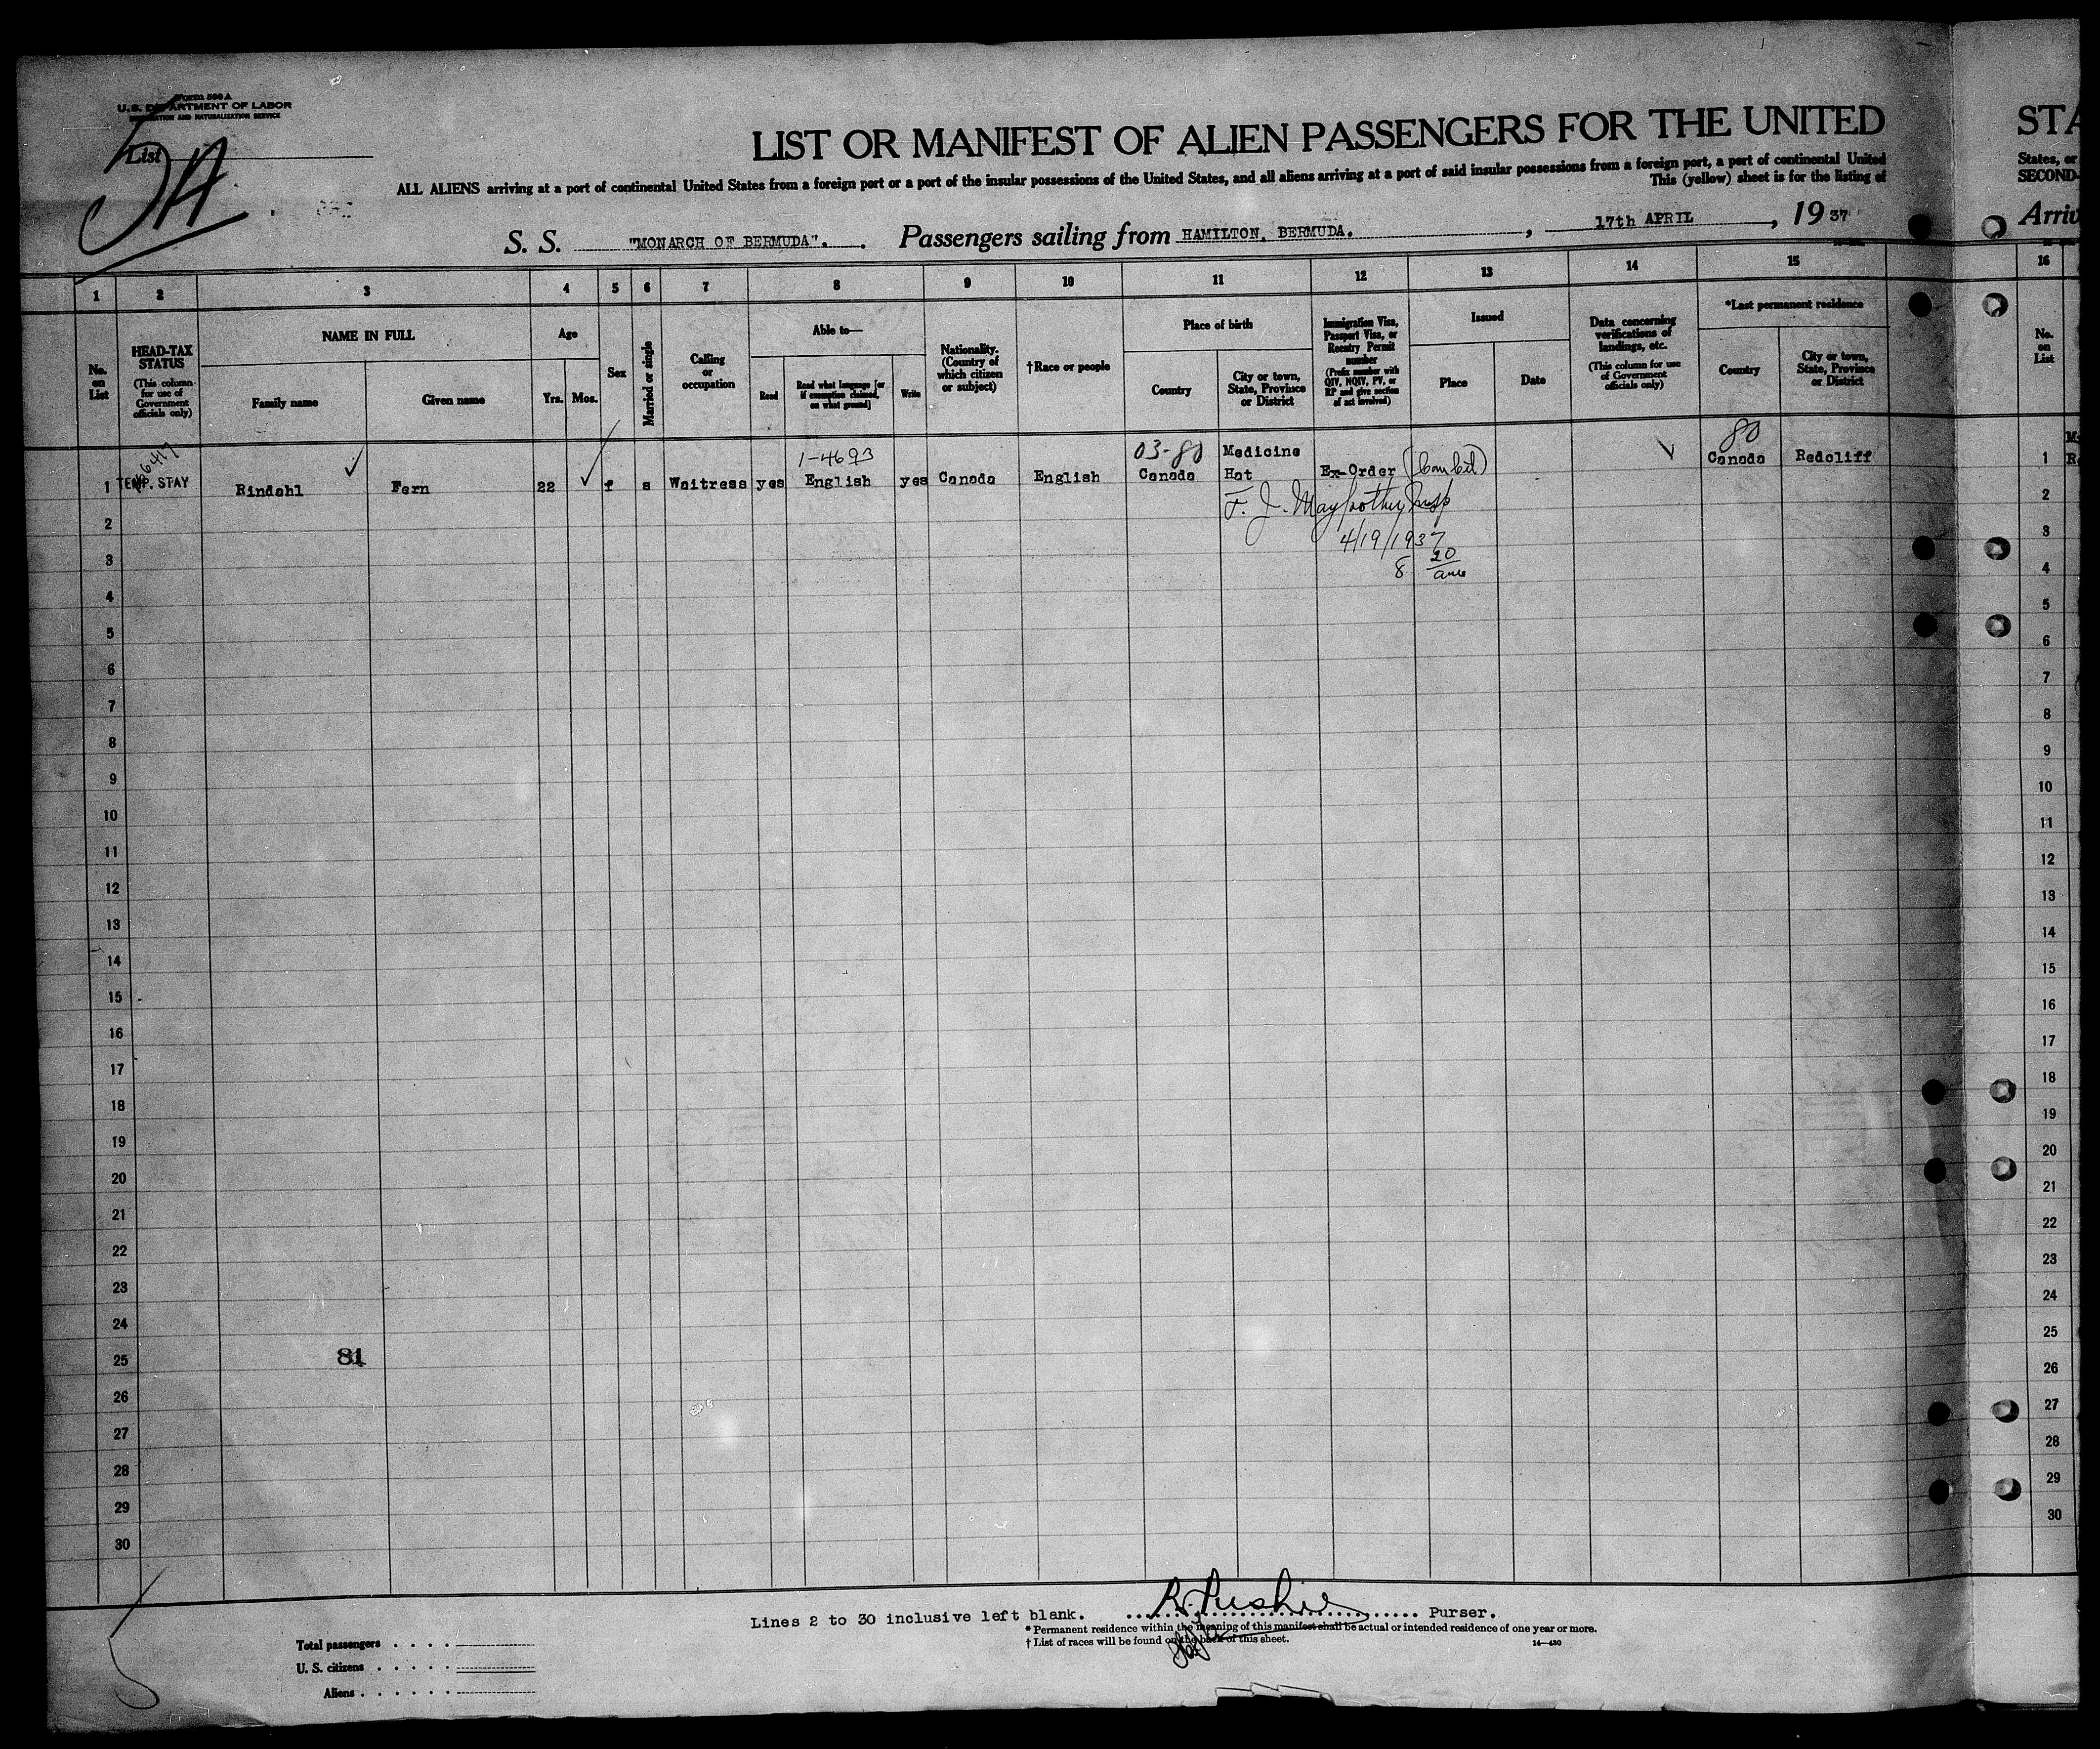 Form 500 A
U.S. DEPARTMENT OF LABOR
IMMIGRATION AND NATURALIZATION SERVICE
List
5A
LIST OR MANIFEST OF ALIEN PASSENGERS FOR THE UNITED
STA
ALL ALIENS arriving at a port of continental United States from a foreign port or a port of the insular possessions of the United States, and all aliens arriving at a port of said insular possessions from a foreign port, a port of continental United
States, or
This (yellow) sheet is for the listing of
SECOND-
S. S. "MONARCH OF BERMUDA". Passengers sailing from HAMILTON, BERMUDA. , 17th APRIL , 1937
Arriv
1 2 3 4 5 6 7 8 9 10 11 12 13 14 15 16
No. on List
HEAD-TAX STATUS
(This column for use of Government officials only)
NAME IN FULL
Family name
Given name
Age
Yrs. Mos.
Sex
Married or single
Calling or occupation
Able to—
Read
Read what language [or if exemption claimed, on what ground]
Write
Nationality. (Country of which citizen or subject)
†Race or people
Place of birth
Country
City or town, State, Province or District
Immigration Visa, Passport Visa, or Reentry Permit number
(Prefix number with QIV, NQIV, PV, or RP and give section of act involved)
Issued
Place
Date
Data concerning verifications of landings, etc.
(This column for use of Government officials only)
*Last permanent residence
Country
City or town, State, Province or District
No. on List
1-4693
03-80
80
1 TEMP. STAY Rindahl Fern 22 f s Waitress yes English yes Canada English Canada Medicine Hat Ex-Order Canada Redcliff 1
F. J. Insp
4/19/1937
8 20 am
2 2
3 3
4 4
5 5
6 6
7 7
8 8
9 9
10 10
11 11
12 12
13 13
14 14
15 15
16 16
17 17
18 18
19 19
20 20
21 21
22 22
23 23
24 24
25 81 25
26 26
27 27
28 28
29 29
30 30
Lines 2 to 30 inclusive left blank. Purser.
* Permanent residence within the meaning of this manifest shall be actual or intended residence of one year or more.
† List of races will be found on the back of this sheet.
14—430
Total passengers
U. S. citizens
Aliens